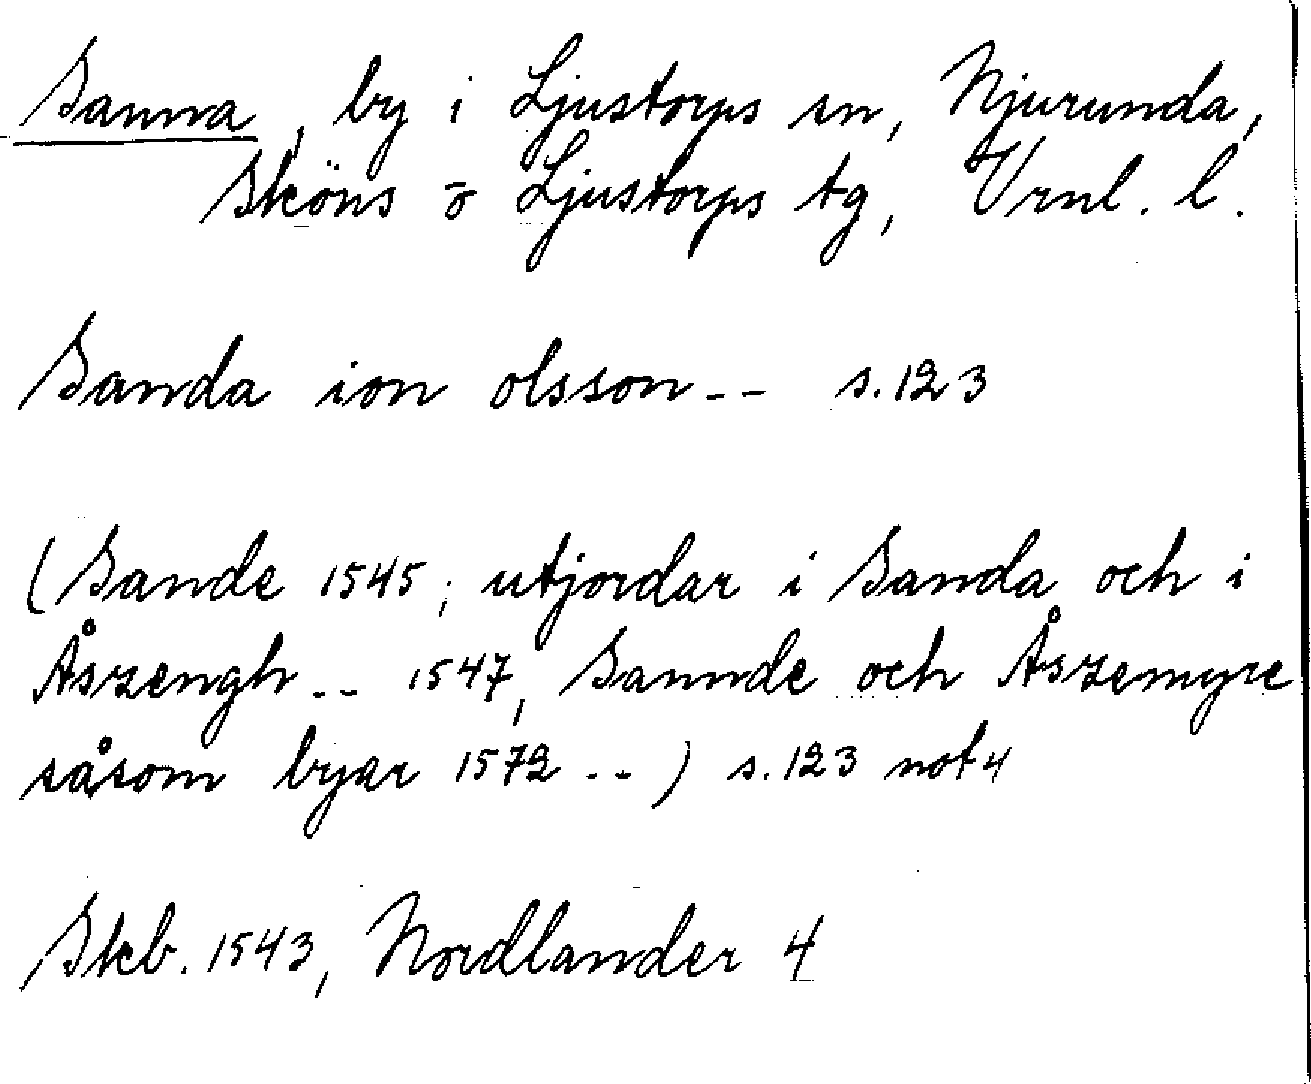 Sanna, by i Ljustorps sn, Njurunda,
Sköns o Ljustorps tg, Vrnl. l.
Sanda ion olsson -- s. 123
(Sande 1545; utjordar i Sanda och i
Åszengh -- 1547, Sannde och Åszemyre
såsom byar 1572 --) s. 123 not 4
Skb. 1543, Nordlander 4